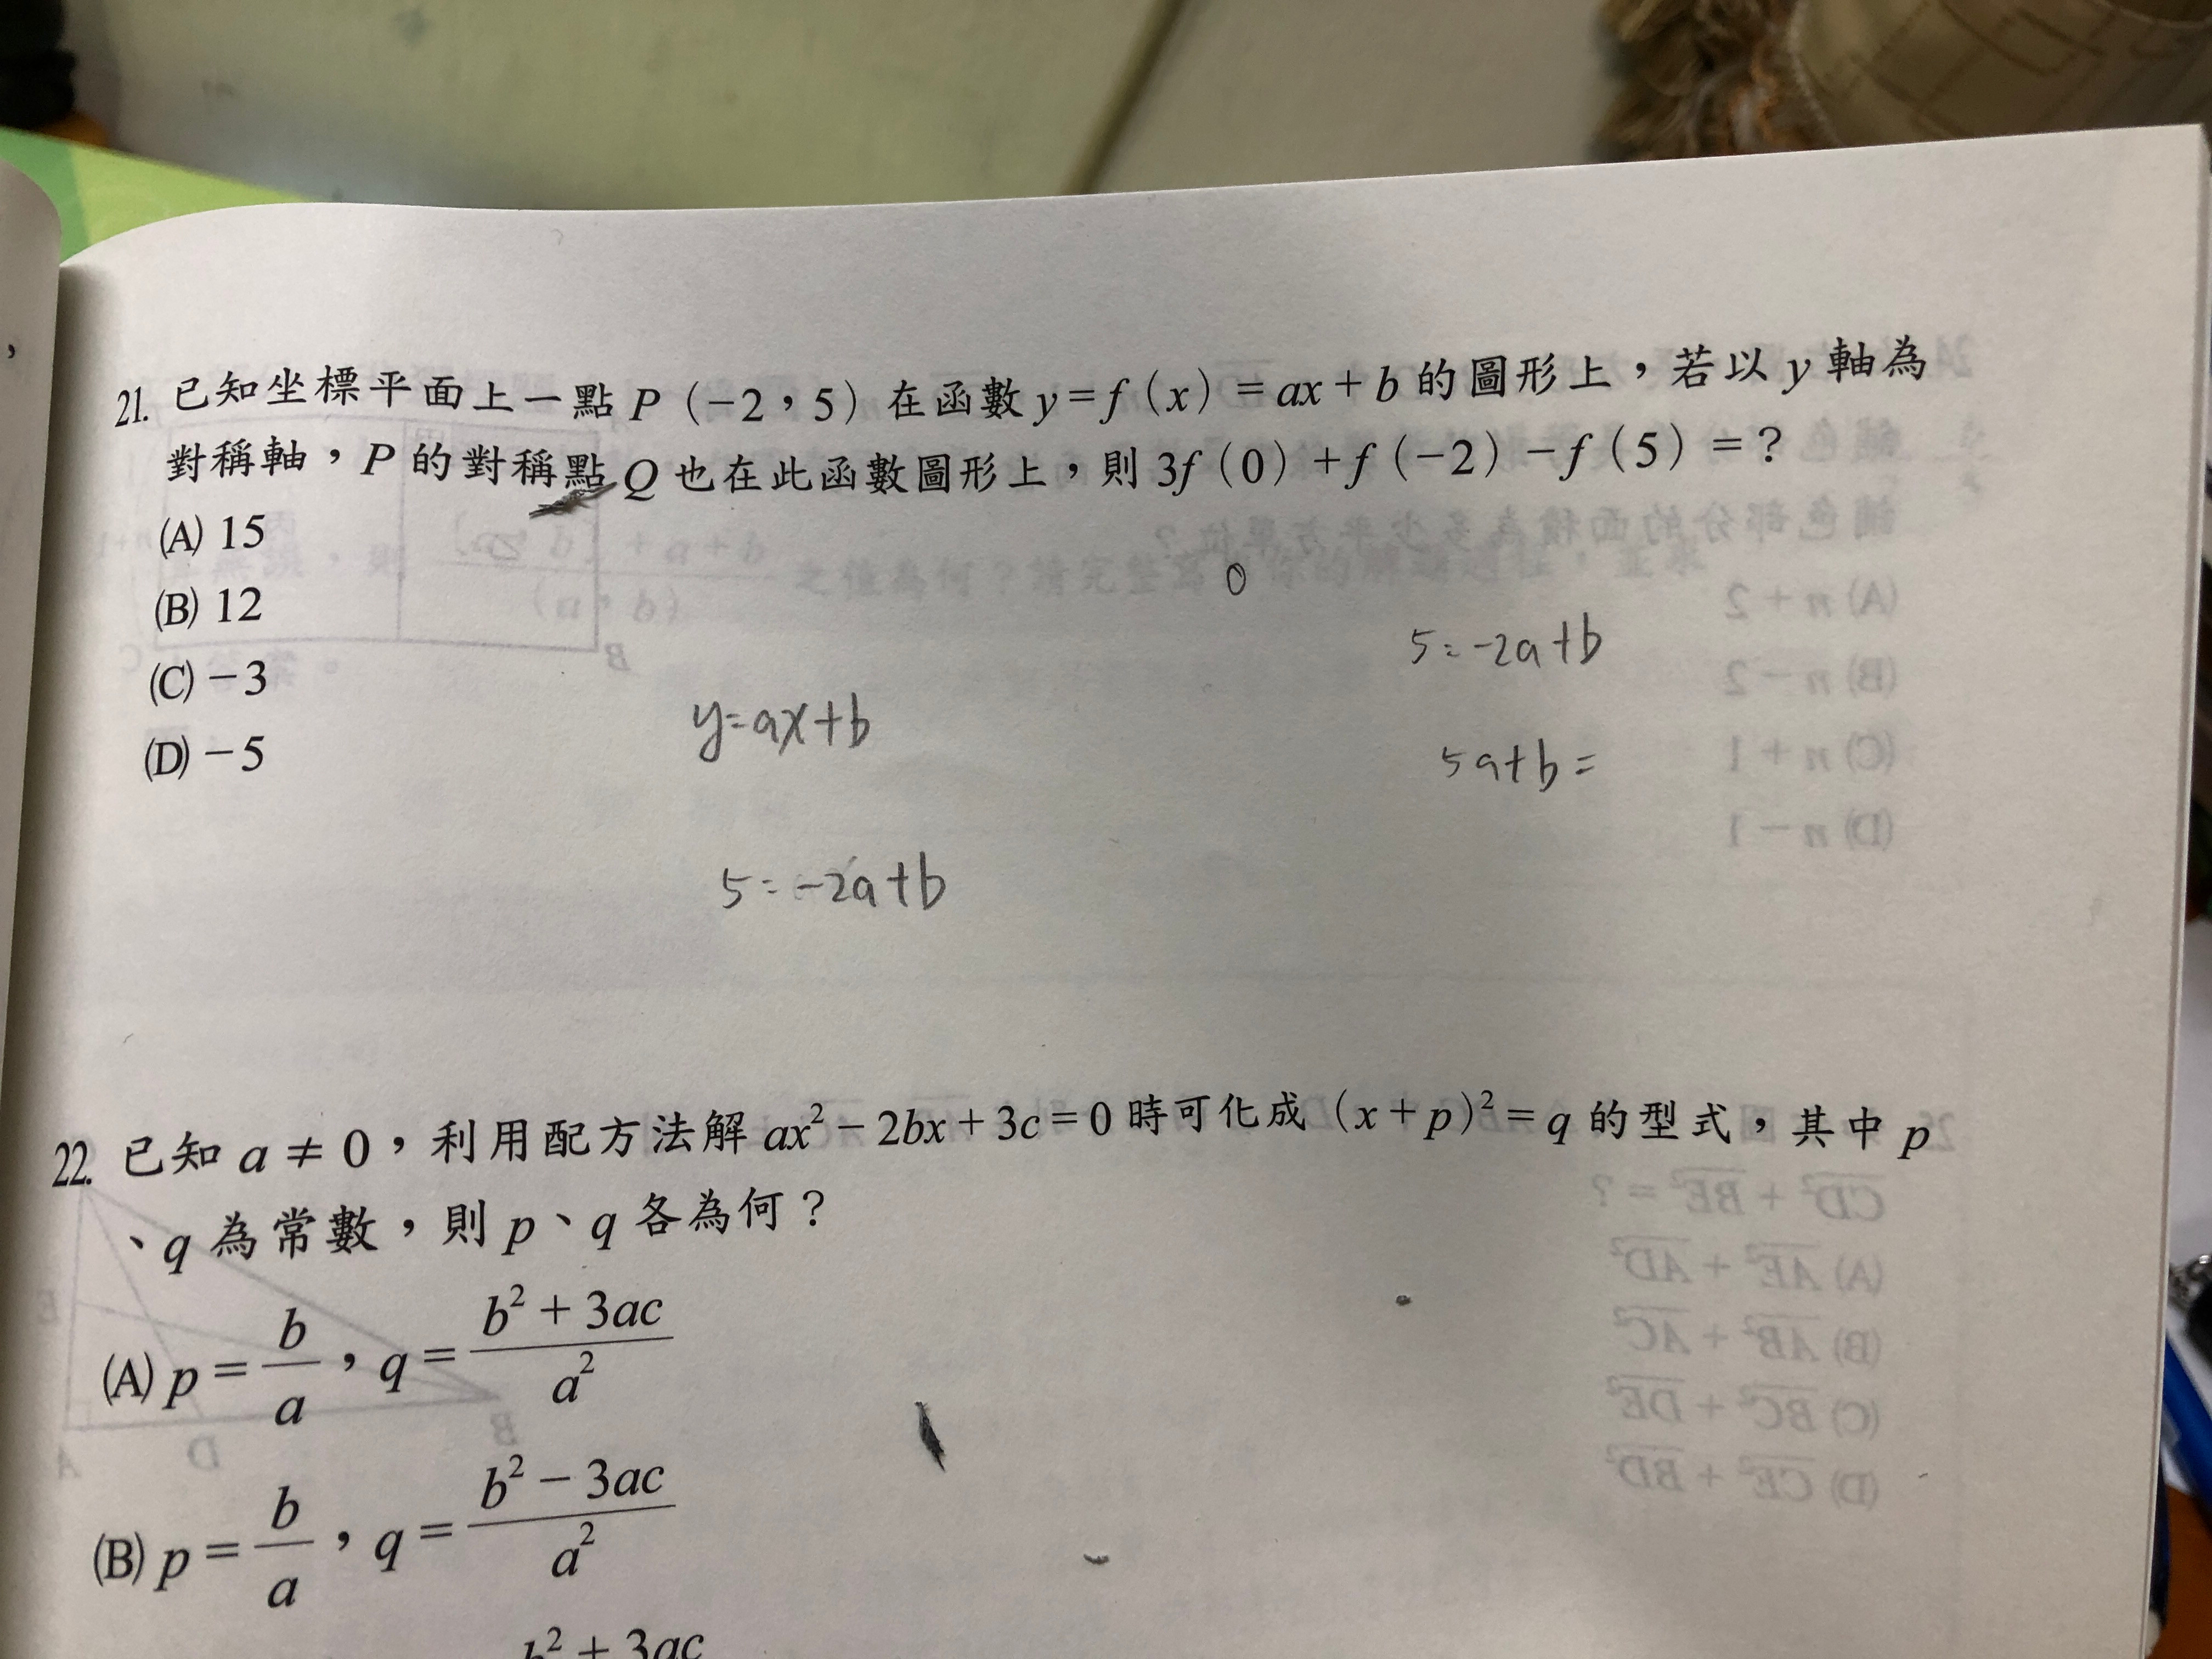 21. 已知坐標平面上一點 P (-2,5) 在函數 y=f(x)=ax+b 的圖形上,若以 y 軸為
對稱軸,P 的對稱點 Q 也在此函數圖形上,則 3f(0)+f(-2)-f(5)=?
(A) 15
(B) 12
(C) -3
(D) -5
0
5=-2a+b
y=ax+b
5a+b=
5=-2a+b
22. 已知 a≠0,利用配方法解 ax²-2bx+3c=0 時可化成 (x+p)²=q 的型式,其中 p
、q 為常數,則 p、q 各為何?
(A) p=b/a,q=(b²+3ac)/a²
(B) p=b/a,q=(b²-3ac)/a²
b²+3ac